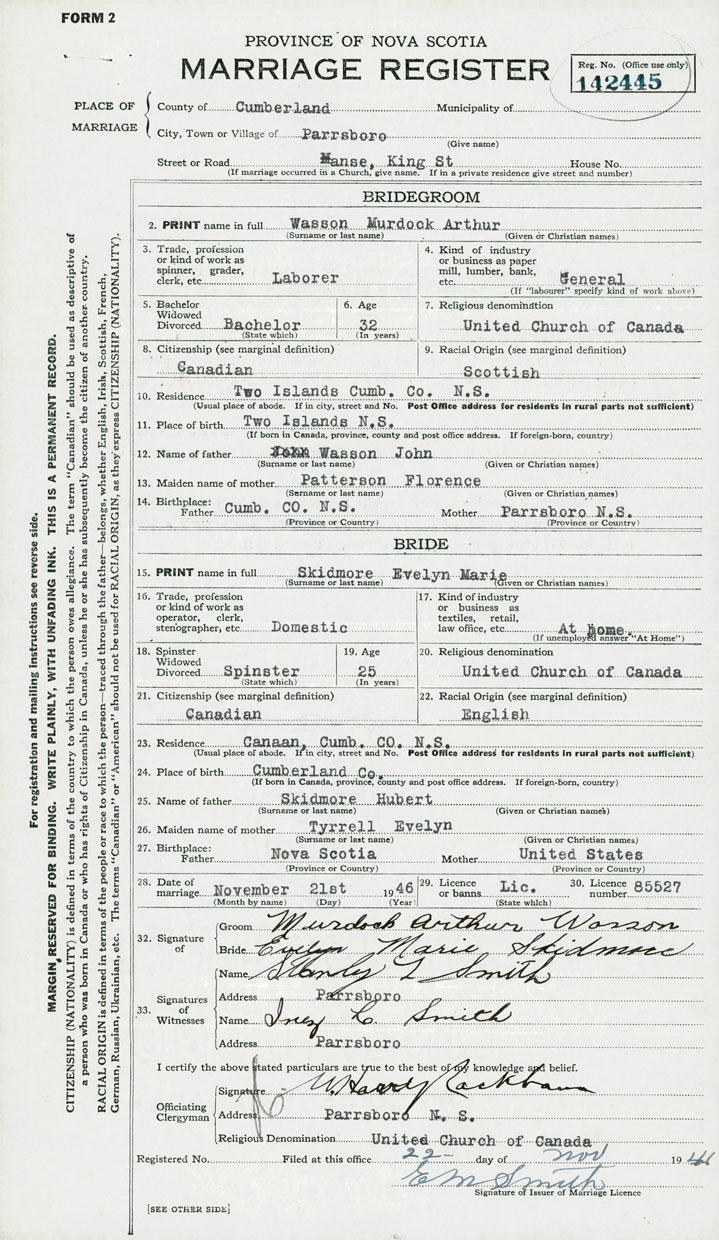 FORM 2
PROVINCE OF NOVA SCOTIA
MARRIAGE REGISTER
Reg. No. (Office use only)
142445
PLACE OF MARRIAGE
County of Cumberland Municipality of
City, Town or Village of Parrsboro
(Give name)
Street or Road Manse, King St House No.
(If marriage occurred in a Church, give name. If in a private residence give street and number)
BRIDEGROOM
2. PRINT name in full Wasson Murdock Arthur
(Surname or last name) (Given or Christian names)
3. Trade, profession or kind of work as spinner, grader, clerk, etc. Laborer
4. Kind of industry or business as paper mill, lumber, bank, etc. General
(If "labourer" specify kind of work above)
5. Bachelor Widowed Divorced Bachelor
(State which)
6. Age 32
(In years)
7. Religious denomination
United Church of Canada
8. Citizenship (see marginal definition)
Canadian
9. Racial Origin (see marginal definition)
Scottish
10. Residence Two Islands Cumb. Co. N.S.
(Usual place of abode. If in city, street and No. Post Office address for residents in rural parts not sufficient)
11. Place of birth Two Islands N.S.
(If born in Canada, province, county and post office address. If foreign-born, country)
12. Name of father Wasson John
(Surname or last name) (Given or Christian names)
13. Maiden name of mother Patterson Florence
(Surname or last name) (Given or Christian names)
14. Birthplace: Father Cumb. CO. N.S. Mother Parrsboro N.S.
(Province or Country) (Province or Country)
BRIDE
15. PRINT name in full Skidmore Evelyn Marie
(Surname or last name) (Given or Christian names)
16. Trade, profession or kind of work as operator, clerk, stenographer, etc. Domestic
17. Kind of industry or business as textiles, retail, law office, etc. At home.
(If unemployed answer "At Home")
18. Spinster Widowed Divorced Spinster
(State which)
19. Age 25
(In years)
20. Religious denomination
United Church of Canada
21. Citizenship (see marginal definition)
Canadian
22. Racial Origin (see marginal definition)
English
23. Residence Canaan, Cumb. CO. N.S.
(Usual place of abode. If in city, street and No. Post Office address for residents in rural parts not sufficient)
24. Place of birth Cumberland Co.
(If born in Canada, province, county and post office address. If foreign-born, country)
25. Name of father Skidmore Hubert
(Surname or last name) (Given or Christian names)
26. Maiden name of mother Tyrrell Evelyn
(Surname or last name) (Given or Christian names)
27. Birthplace: Father Nova Scotia Mother United States
(Province or Country) (Province or Country)
28. Date of marriage November 21st 1946
(Month by name) (Day) (Year)
29. Licence or banns Lic.
(State which)
30. Licence number 85527
32. Signature of
Groom Murdock Arthur Wasson
Bride Evelyn Marie Skidmore
33. Signatures of Witnesses
Name Stanly L Smith
Address Parrsboro
Name Inez C. Smith
Address Parrsboro
I certify the above stated particulars are true to the best of my knowledge and belief.
Officiating Clergyman
Signature
Address Parrsboro N. S.
Religious Denomination United Church of Canada
Registered No. Filed at this office 22- day of Nov 1946
E M Smith
Signature of Issuer of Marriage Licence
[SEE OTHER SIDE]
For registration and mailing instructions see reverse side.
MARGIN RESERVED FOR BINDING. WRITE PLAINLY, WITH UNFADING INK. THIS IS A PERMANENT RECORD.
CITIZENSHIP (NATIONALITY) is defined in terms of the country to which the person owes allegiance. The term "Canadian" should be used as descriptive of
a person who was born in Canada or who has rights of Citizenship in Canada, unless he or she has subsequently become the citizen of another country.
RACIAL ORIGIN is defined in terms of the people or race to which the person—traced through the father—belongs, whether English, Irish, Scottish, French,
German, Russian, Ukrainian, etc. The terms "Canadian" or "American" should not be used for RACIAL ORIGIN, as they express CITIZENSHIP (NATIONALITY).